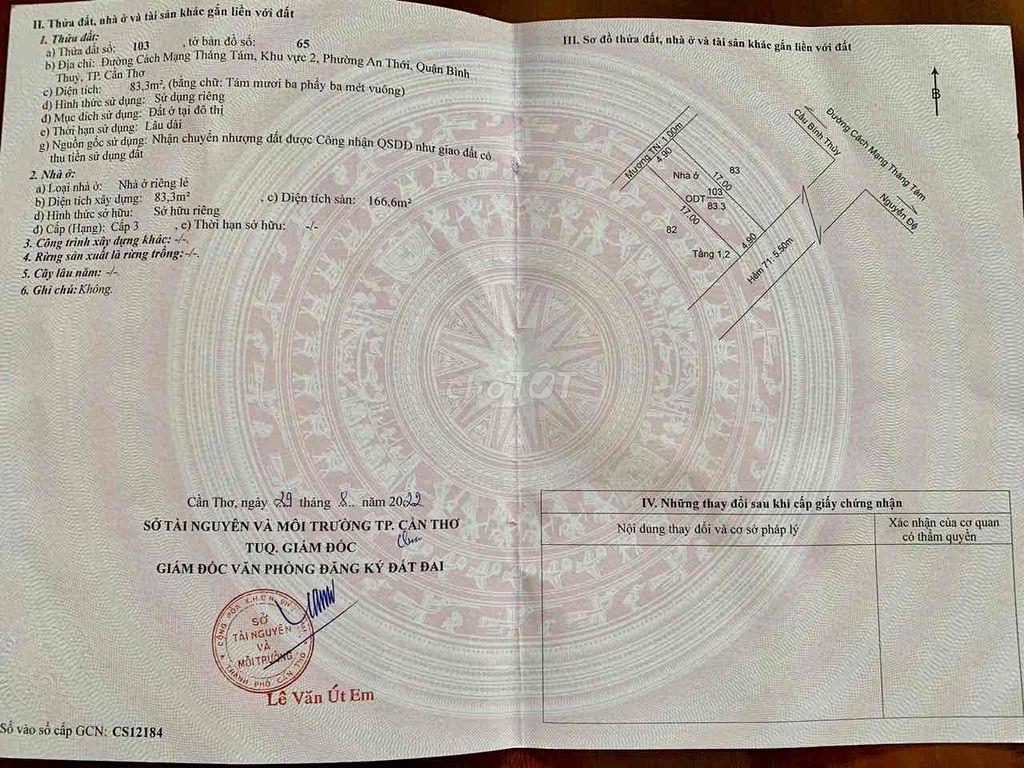 II. Thửa đất, nhà ở và tài sản khác gắn liền với đất
1. Thửa đất:
a) Thửa đất số: 103 , tờ bản đồ số: 65
b) Địa chỉ: Đường Cách Mạng Tháng Tám, Khu vực 2, Phường An Thới, Quận Bình
Thuỷ, TP. Cần Thơ
c) Diện tích: 83,3m², (bằng chữ: Tám mươi ba phẩy ba mét vuông)
d) Hình thức sử dụng: Sử dụng riêng
đ) Mục đích sử dụng: Đất ở tại đô thị
e) Thời hạn sử dụng: Lâu dài
g) Nguồn gốc sử dụng: Nhận chuyển nhượng đất được Công nhận QSDĐ như giao đất có
thu tiền sử dụng đất
2. Nhà ở:
a) Loại nhà ở: Nhà ở riêng lẻ
b) Diện tích xây dựng: 83,3m² , c) Diện tích sàn: 166,6m²
d) Hình thức sở hữu: Sở hữu riêng
đ) Cấp (Hạng): Cấp 3 , e) Thời hạn sở hữu: -/-
3. Công trình xây dựng khác: -/-.
4. Rừng sản xuất là rừng trồng:-/-.
5. Cây lâu năm: -/-.
6. Ghi chú: Không.
Cần Thơ, ngày 29 tháng 8.. năm 2022
SỞ TÀI NGUYÊN VÀ MÔI TRƯỜNG TP. CẦN THƠ
TUQ. GIÁM ĐỐC
GIÁM ĐỐC VĂN PHÒNG ĐĂNG KÝ ĐẤT ĐAI
SỞ
TÀI NGUYÊN
VÀ
MÔI TRƯỜNG
THÀNH PHỐ CẦN THƠ
Lê Văn Út Em
Số vào sổ cấp GCN: CS12184
III. Sơ đồ thửa đất, nhà ở và tài sản khác gắn liền với đất
B
Đường Cách Mạng Tháng Tám
Cầu Bình Thủy
Nguyễn Đệ
Mương TN: 1.00m
4.90
Nhà ở
83
17.00
ODT 103
83.3
17.00
82
4.90
Tầng 1,2
Hẻm 71: 5.50m
choTOT
IV. Những thay đổi sau khi cấp giấy chứng nhận
Nội dung thay đổi và cơ sở pháp lý
Xác nhận của cơ quan
có thẩm quyền